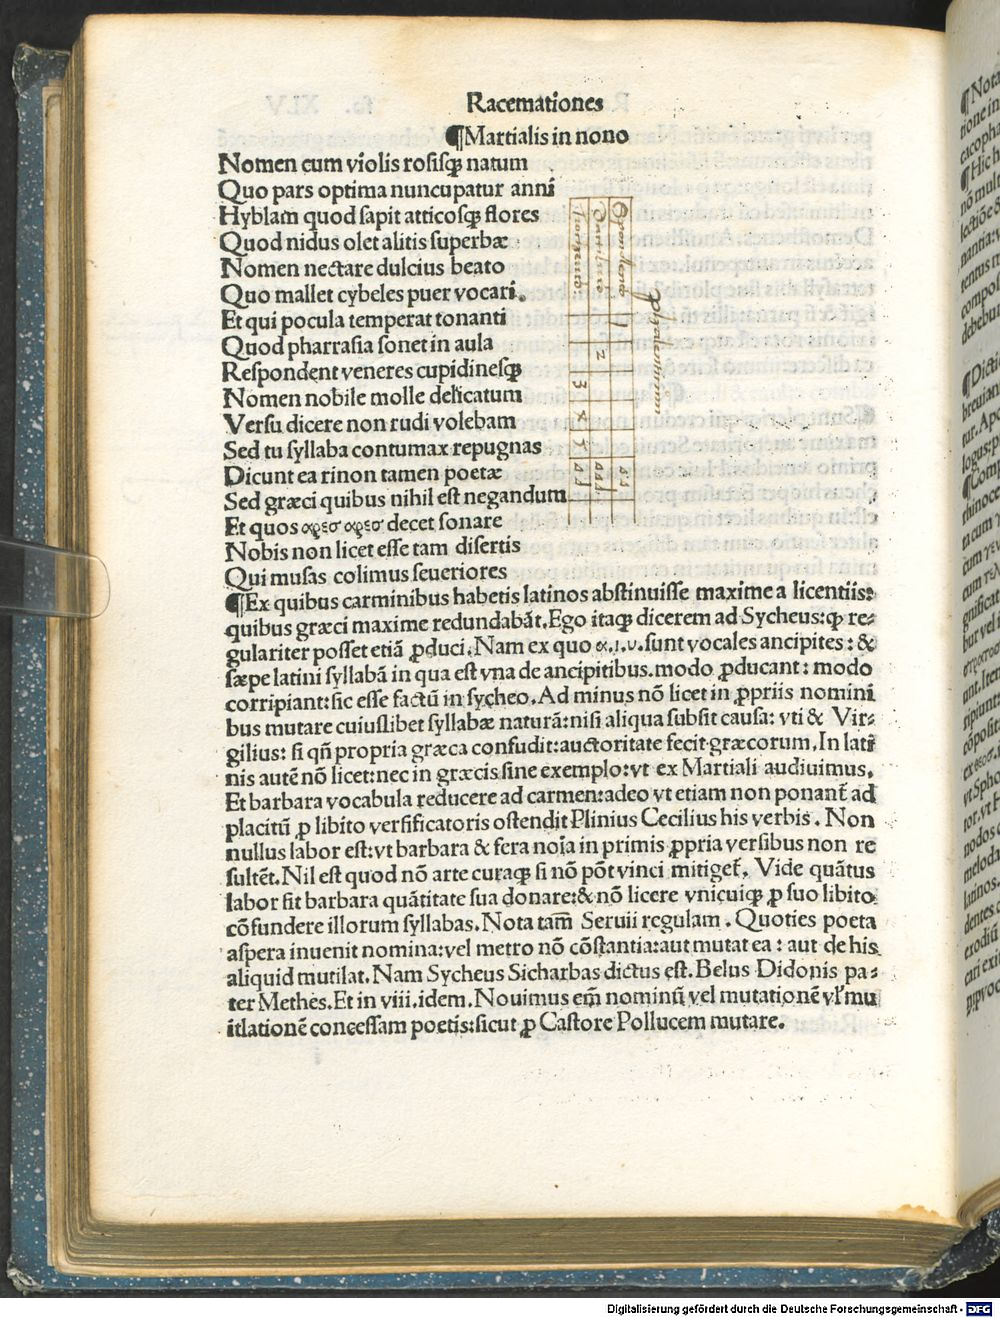 Racemationes
¶Martialis in nono
Nomen cum violis rosisqꝫ natum
Quo pars optima nuncupatur anni
Hyblam quod sapit atticosqꝫ flores
Quod nidus olet alitis superbæ
Nomen nectare dulcius beato
Quo mallet cybeles puer vocari.
Et qui pocula temperat tonanti
Quod pharrasia sonet in aula
Respondent veneres cupidinesqꝫ
Nomen nobile molle delicatum
Versu dicere non rudi volebam
Sed tu syllaba contumax repugnas
Dicunt ea rinon tamen poetæ
Sed græci quibus nihil est negandum
Et quos αρεσ αρεσ decet sonare
Nobis non licet esse tam disertis
Qui musas colimus seueriores
¶Ex quibus carminibus habetis latinos abstinuisse maxime a licentiis:
quibus græci maxime redundabāt. Ego itaqꝫ dicerem ad Sycheus: ꝙ re⸗
gulariter posset etiā ꝓduci. Nam ex quo α.ι.υ. sunt vocales ancipites: &
sæpe latini syllabā in qua est vna de ancipitibus. modo ꝓducant: modo
corripiant: sic esse factū in sycheo. Ad minus nō licet in ꝓpriis nomini
bus mutare cuiuslibet syllabæ naturā: nisi aliqua subsit causa: vti & Vir⸗
gilius: si qñ propria græca confudit: auctoritate fecit græcorum. In lati
nis autē nō licet: nec in græcis sine exemplo: vt ex Martiali audiuimus.
Et barbara vocabula reducere ad carmen: adeo vt etiam non ponant᷑ ad
placitū ꝓ libito versificatoris ostendit Plinius Cecilius his verbis. Non
nullus labor est: vt barbara & fera noīa in primis ꝓpria versibus non re
sultēt. Nil est quod nō arte curaqꝫ si nō pōt vinci mitiget᷑. Vide quātus
labor sit barbara quātitate sua donare: & nō licere vnicuiqꝫ ꝓ suo libito
cōfundere illorum syllabas. Nota tam̄ Seruii regulam. Quoties poeta
aspera inuenit nomina: vel metro nō cōstantia: aut mutat ea: aut de his
aliquid mutilat. Nam Sycheus Sicharbas dictus est. Belus Didonis pa⸗
ter Methes. Et in viii. idem. Nouimus em̄ nominū vel mutationē vl̓ mu
itlationē concessam poetis: sicut ꝓ Castore Pollucem mutare.
1
2
3
Digitalisierung gefördert durch die Deutsche Forschungsgemeinschaft - DFG